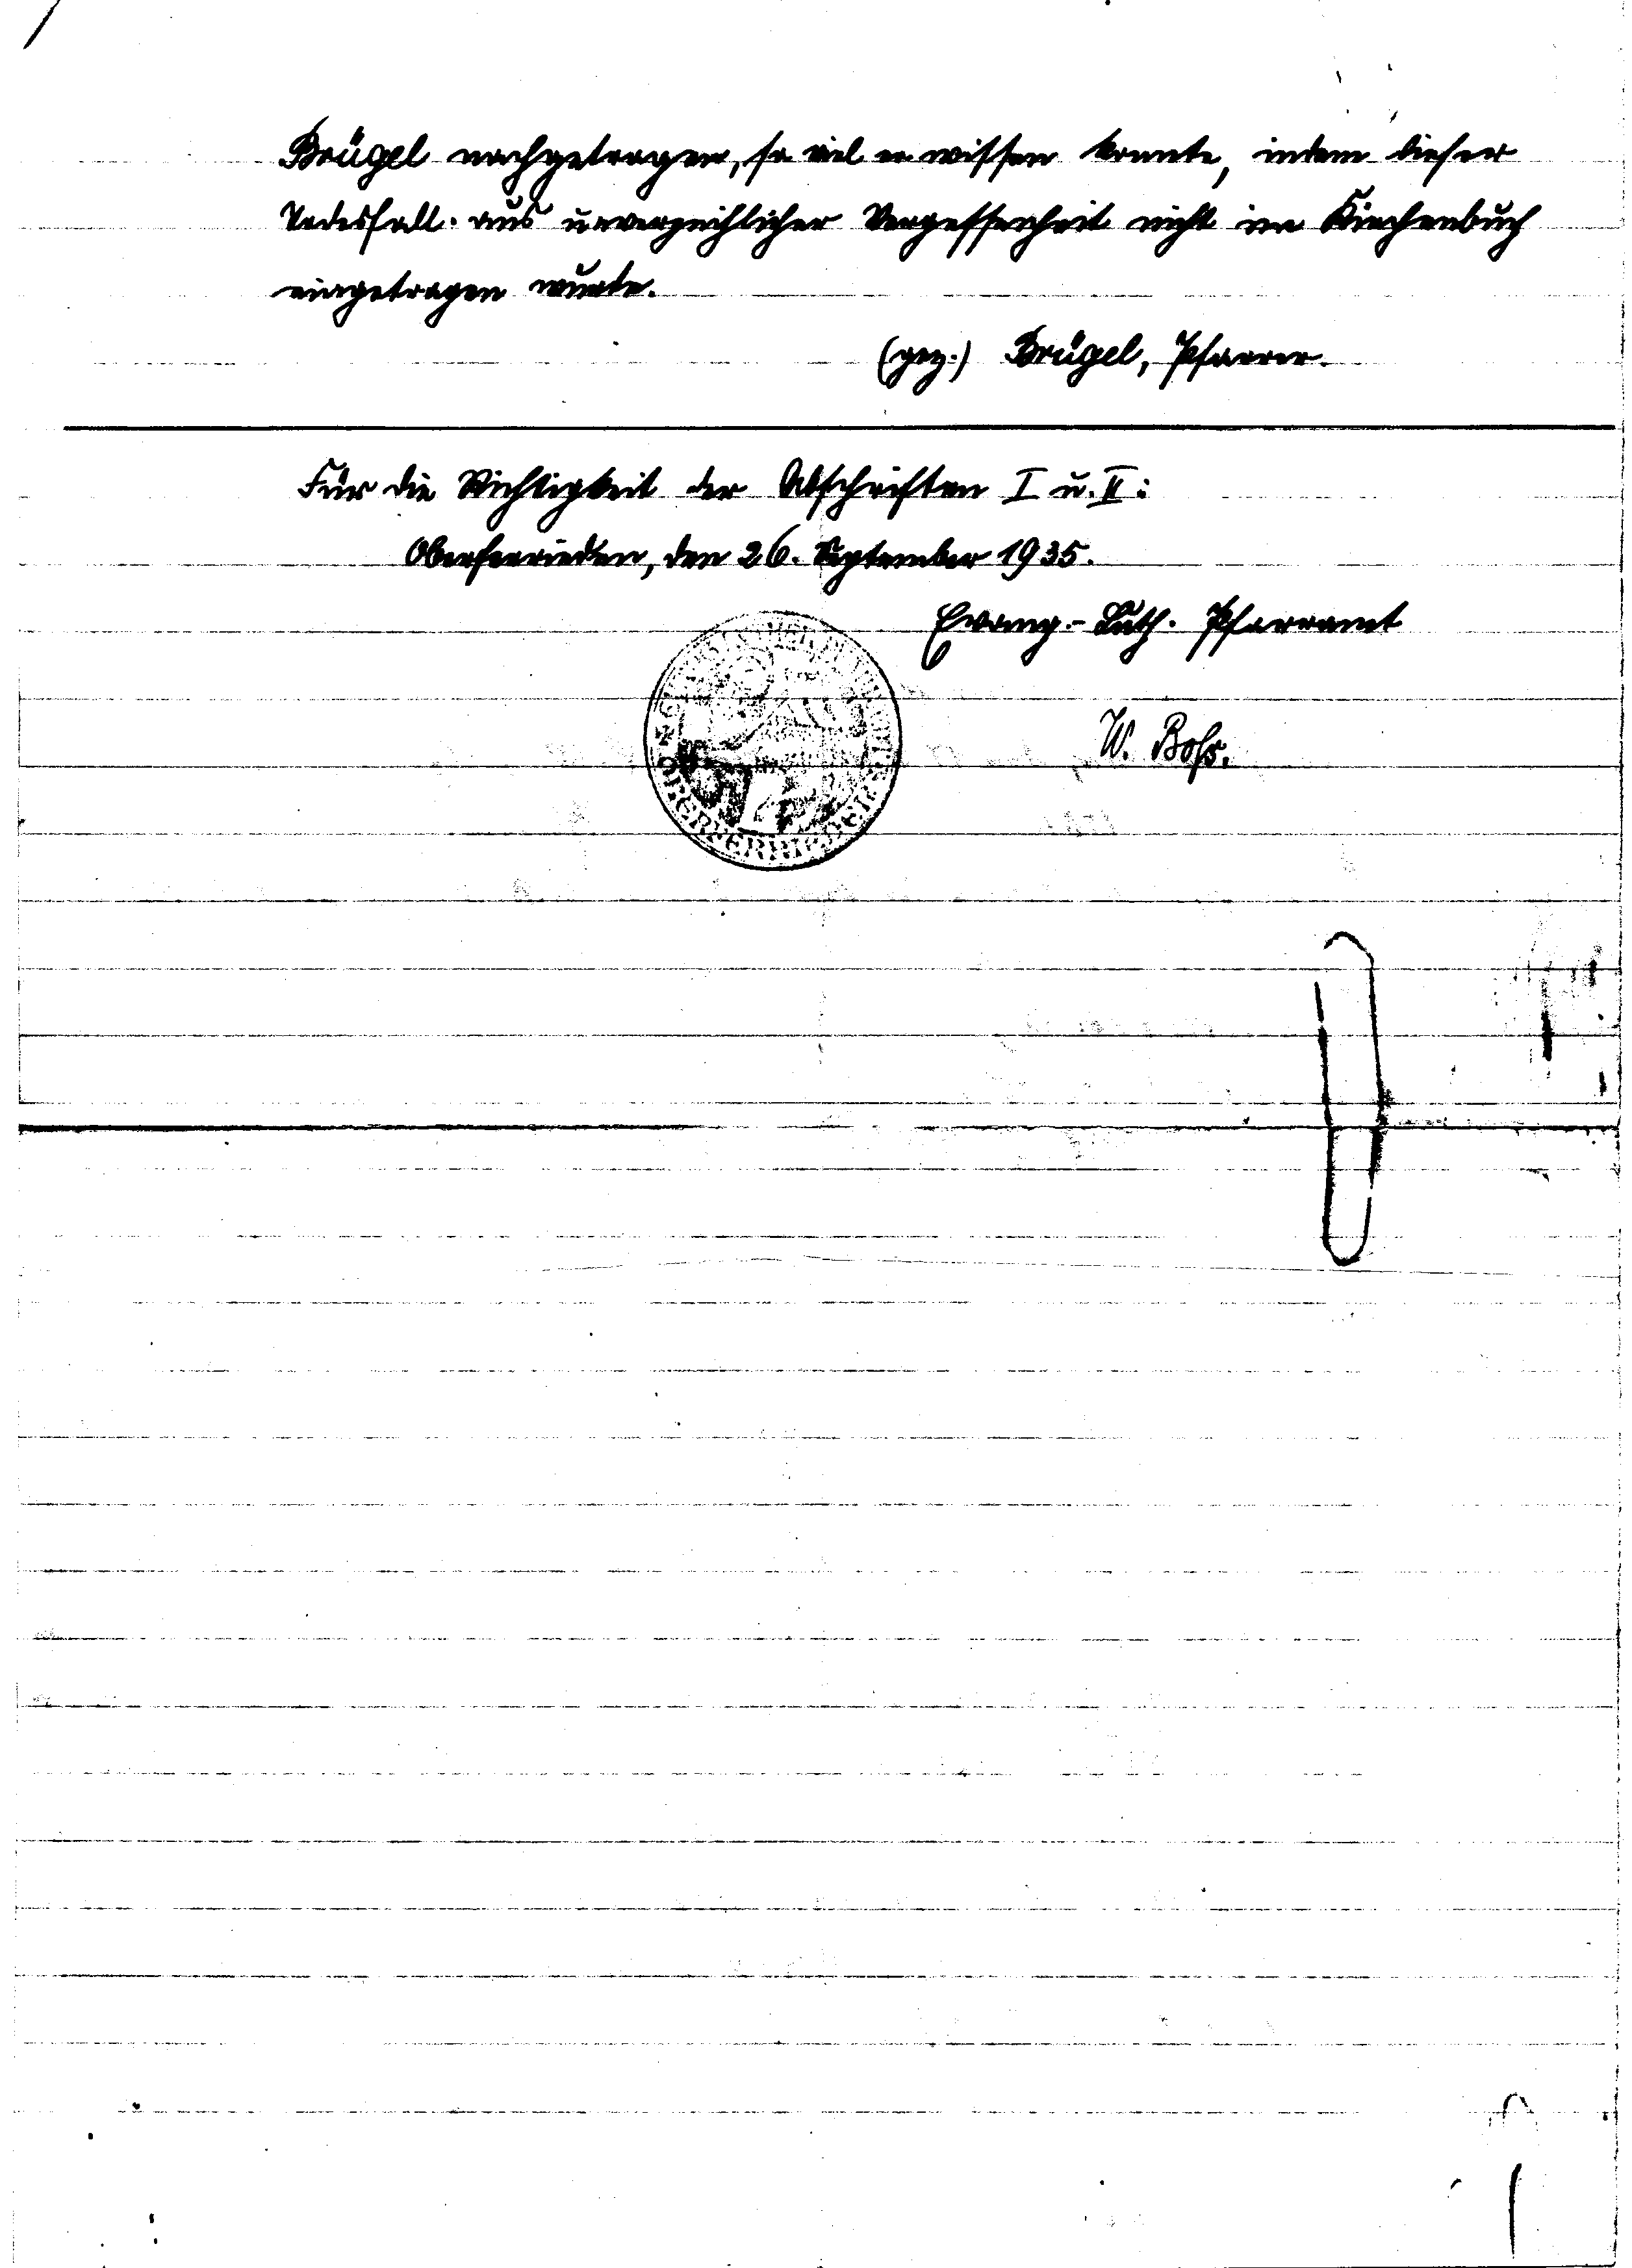 Brügel nachgetragen, so viel er wissen konnte, indem dieser
Todesfall aus unverzeihlicher Vergessenheit nicht im Kirchenbuch
eingetragen wurde.
(gez.) Brügel, Pfarrer.
Für die Richtigkeit der Abschriften I u. II:
Oberferrieden, den 26. September 1935.
Evang.-Luth. Pfarramt
W. Boss.
OBERFERRIEDEN